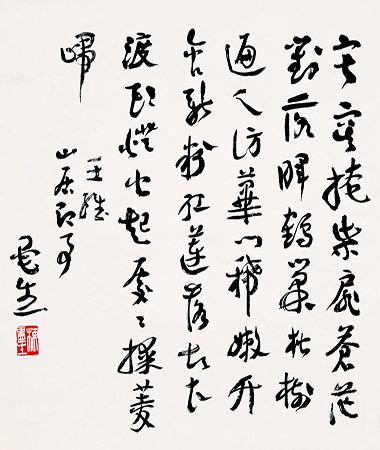 寂寞掩柴扉蒼茫
對落暉鶴巢松樹
遍人訪蓽門稀嫩竹
含新粉紅蓮落故衣
渡頭燈火起處々採菱
歸
王維
山居即事